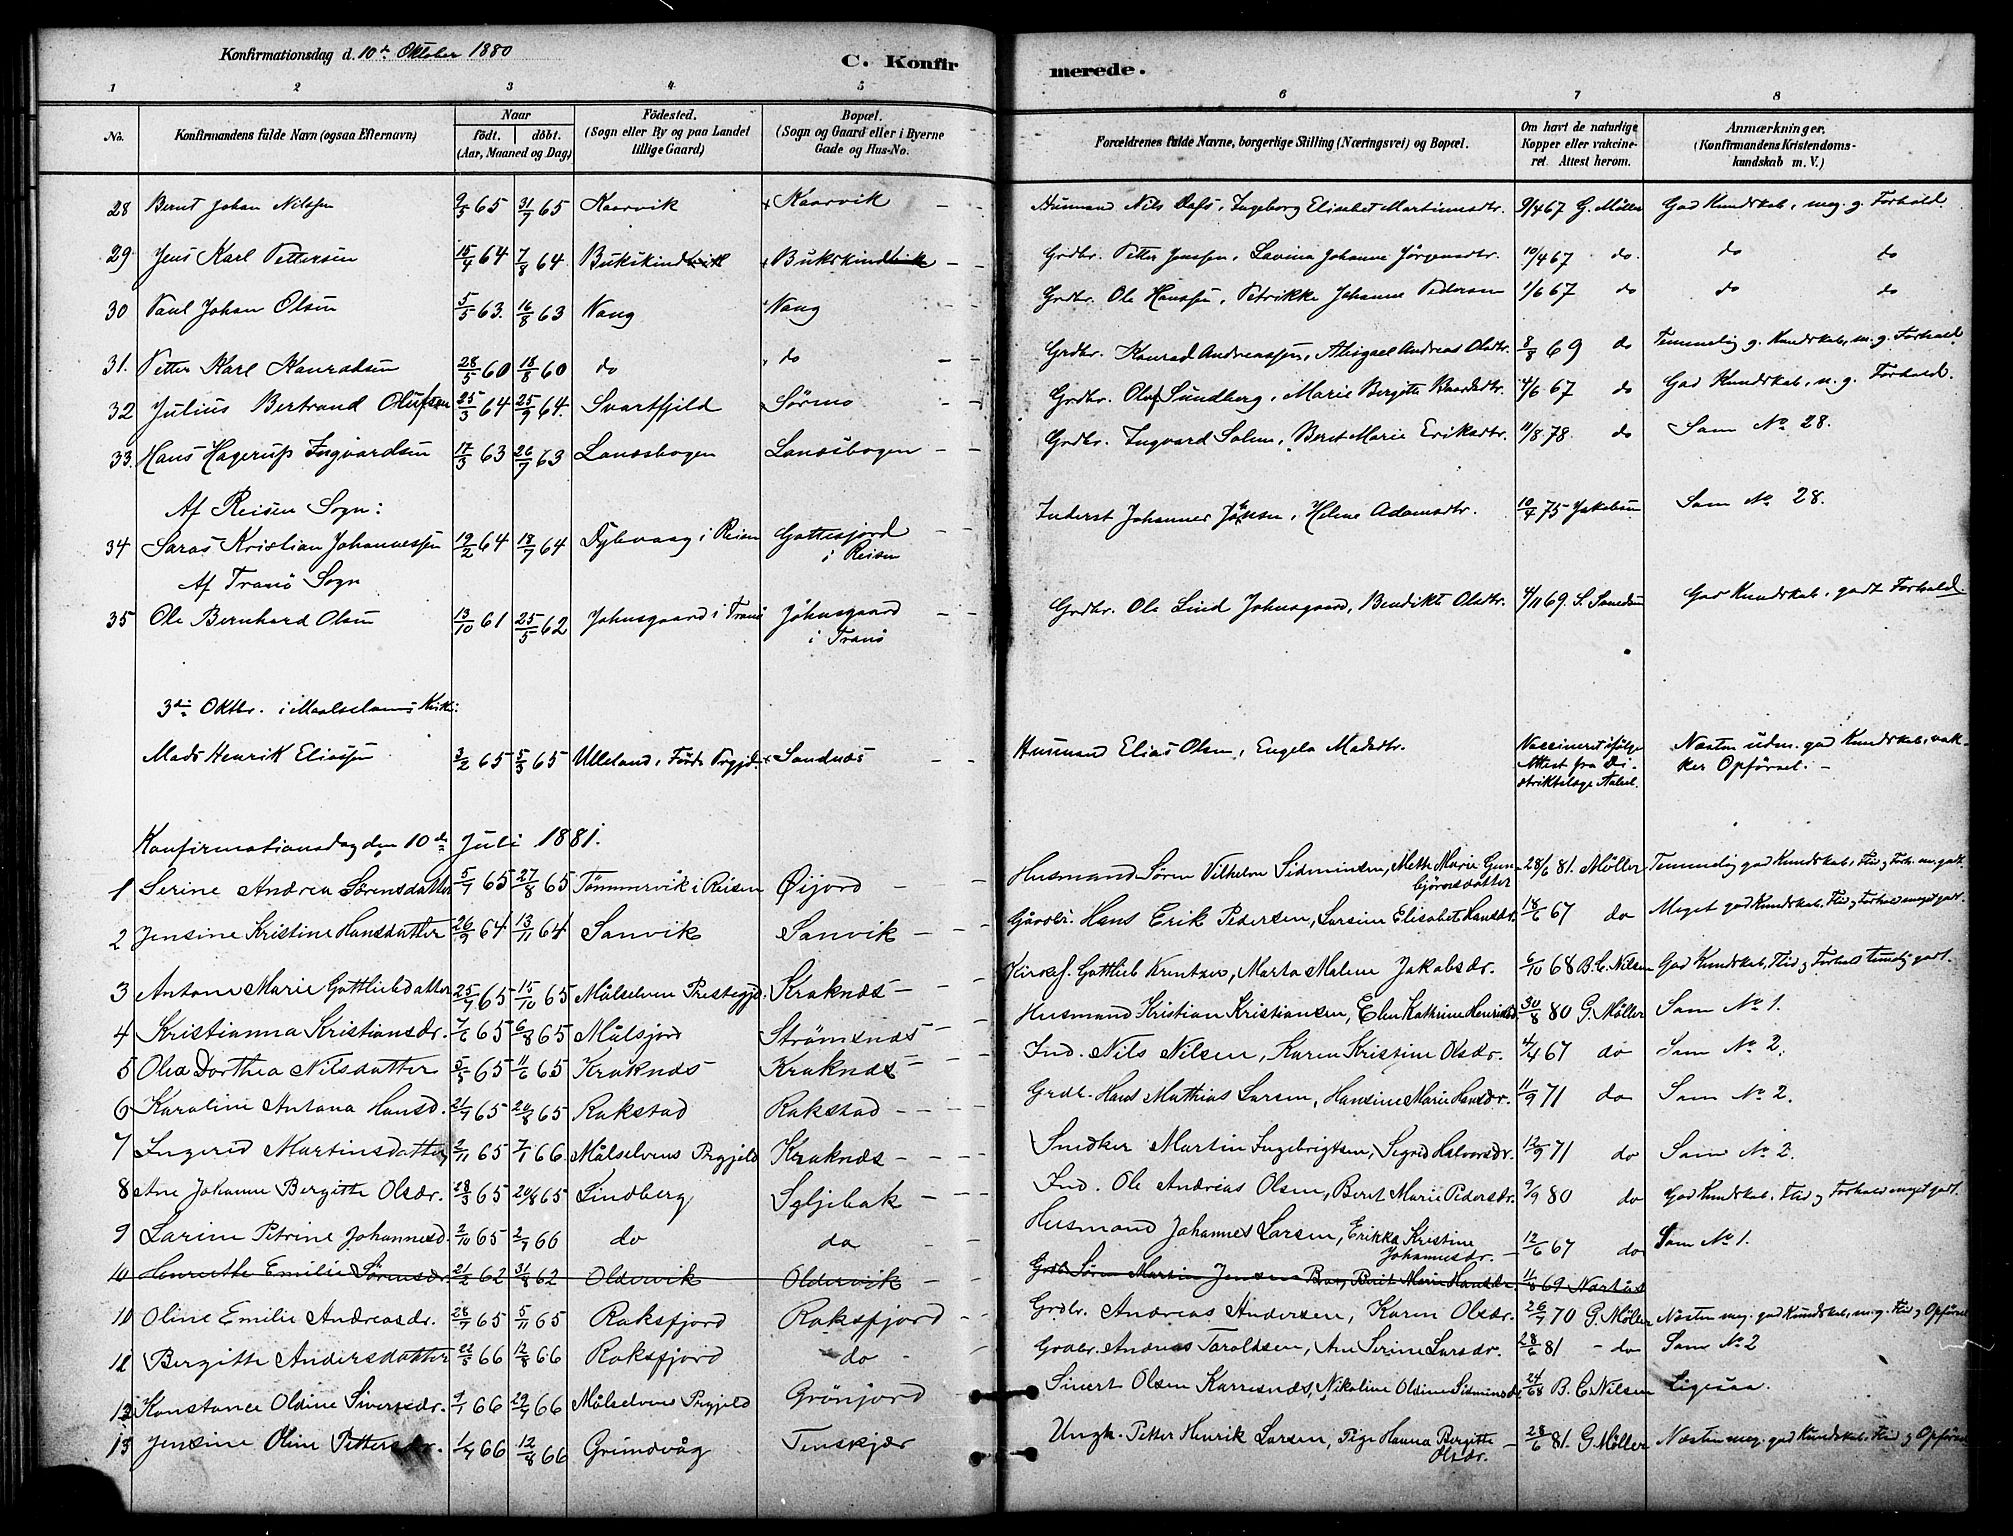 Konfirmationsdag d. 10de Oktober 1880
C. Konfirmerede.
1 2 3 4 5 6 7 8
No. Konfirmandens fulde Navn (ogsaa Efternavn) Naar födt. döbt. (Aar, Maaned og Dag) Födested. (Sogn eller By og paa Landet tillige Gaard) Bopæl. (Sogn og Gaard eller i Byerne Gade og Hus-No. Forældrenes fulde Navne, borgerlige Stilling (Næringsvei) og Bopæl. Om havt de naturlige Kopper eller vakcineret. Attest herom. Anmærkninger. (Konfirmandens Kristendomskundskab m. V.)
28 Bernt Johan Nilssen 9/5 65 31/7 65 Kaarvik Kaarvik Husmand Nils Olafs, Ingeborg Elisabet Martinusdtr. 9/4 67 G. Møller God Kundskab, meg. g. Forhold
29 Jens Karl Pettersen 15/4 64 7/8 64 Bukskind Bukskind Grdbr. Petter Jenssen, Lavina Johanna Jörgensdtr. 10/4 67 do do do
30 Paul Johan Olsen 5/5 63. 16/8 63 Vang Vang Grdbr. Ole Hanssen, Petrikke Johanne Pedersen 1/6 67 do do do
31. Petter Karl Konradsen 28/5 60 18/8 60 do do Grdbr. Konrad Andreassen, Abigael Andrea Olsdtr. 8/8 69 do Temmelig g. Kundskab, m. g. Forhold.
32 Julius Bertrand Olufsen 25/3 64 25/9 64. Svartfjeld Sörmo Grdbr. Olaf Sundberg, Marie Bergitte Baardsdtr. 4/6 67 do God Kundskab, m. g. Forhold.
33. Hans Hagerup Ingvardsen 17/3 63 26/7 63 Landsbogen Landsbogen Grdbr. Ingvard Solem, Beret Marie Eriksdtr. 11/8 78. do Som No. 28.
Af Reisen Sogn:
34 Saras Kristian Johannessen 19/2 64 18/7 64 Dybvaag i Reisen Gottesjord i Reisen Inderst Johannes Jensen, Helene Adamsdtr. 10/4 75 Jakobsen Som No. 28.
Af Tranö Sogn
35 Ole Bernhard Olsen 13/10 61 25/5 62 Johnsgaard i Tranö Johnsgaard i Tranö Grdbr. Ole Lind Johnsgaard, Benedikte Olsdtr. 4/11 69. God Kundskab, godt Forhold
3die Oktbr. i Maalselvens Kirke:
Mads Henrik Eliassen 3/2 65 5/3 65 Ulleland, Förde Prgjd. Sandnæs Husmand Elias Olsen, Engela Madsdtr. Vaccineret ifølge Attest fra Distriktslæge Næsten udm. god Kundskab, vakker Opförsel. -
Konfirmationsdag den 10de Juli 1881.
1 Serine Andrea Sørensdatter 5/7 65 27/8 65 Tömmervik i Reisen Øijord Husmand Sören Vilhelm Sidminsen, Mette Marie Gunbjörnsdatter 28/6 81. Møller Temmelig god Kundskab, Flid og Forh. m. godt.
2 Jensine Kristine Hansdatter 26/9 64 13/11 64 Sanvik Sanvik Gårdbr. Hans Erik Pedersen, Larsine Elisabet Hansdr. 18/6 67 do Meget god Kundskab, Flid og Forhold meget godt.
3 Antone Marie Gottliebdatter 25/7 65 15/10 65 Målselven Prestegjd. Kraknæs Gottlieb Krentzer, Marta Malene Jakobsdr. 6/10 68 B. C. Nilsen God Kundskab, Flid og Forhold temlig godt.
4 Kristianna Kristiansdr. 7/6 65 6/8 65 Målsjord Strömsnæs Husmand Kristian Kristiansen, Elen Kathrine Henriksd. 30/8 80 G. Møller Som No. 1.
5 Olea Dorthea Nilsdatter 5/5 65 11/6 65 Kraknæs Kraknæs Ind. Nils Nilsen, Karen Kristine Olsdr. 4/4 67 do Som No. 2.
6 Karoline Antona Hansd. 21/7 65 20/8 65 Rakstad Rakstad Grdbr. Hans Mathias Larsen, Hansine Marie Hansdr. 11/9 71 do Som No. 2.
7 Ingerid Martinsdatter 2/11 65 7/1 66. Målselvens Prgjeld Kraknæs Snedker Martin Ingebrigtsen, Sigrid Halvorsdr. 12/9 71 do Som No. 2.
8 Ane Johanna Bergitte Olsdr. 28/3 65 20/8 65 Lindberg Seljebak Ind. Ole Andreas Olsen, Beret Marie Pedersdr. 9/9 80 do God Kundskab. Flid og Forhold meget godt.
9 Larine Petrine Johannesd. 2/10 65 2/7 66 do do Husmand Johannes Larsen, Erikka Kristine Johannesdr. 12/6 67 do Som No. 1.
10 Henriette Emilie Sörensdr. 21/2 62 31/8 62 Oldervik Oldervik Grdbr. Sören Martin Jensen Berit Marie Hansdr. 11/8 69
10 Oline Emilie Andreasdr. 28/7 65 5/11 65 Roksfjord Roksfjord Grdbr. Andreas Andersen, Karen Olsdr. 26/7 70 G. Møller Næsten meg. god Kundskab, m. g. Flid og Opförsel
11 Bergitte Andersdatter 22/5 66 12/8 66 Roksfjord do Grdbr. Anders Taraldsen, Ane Serine Larsdr. 28/6 81 - do Som No. 2
12 Konstance Oldine Siversdr. 9/1 66 29/7 66 Målselvens Prgjeld Grönjord Sivert Olsen Karresnæs, Nikoline Oldine Sidminsdr. 24/6 68 B. C. Nilsen Ligesaa.
13 Jensine Oline Pettersdr. 1/4 66 12/8 66 Grundvåg Tenskjær Ungk. Petter Henrik Larsen, Pige Hanna Bergitte Olsdr. 28/6 81. G. Møller Næsten meg. god Kundskab, Flid og Opförsel